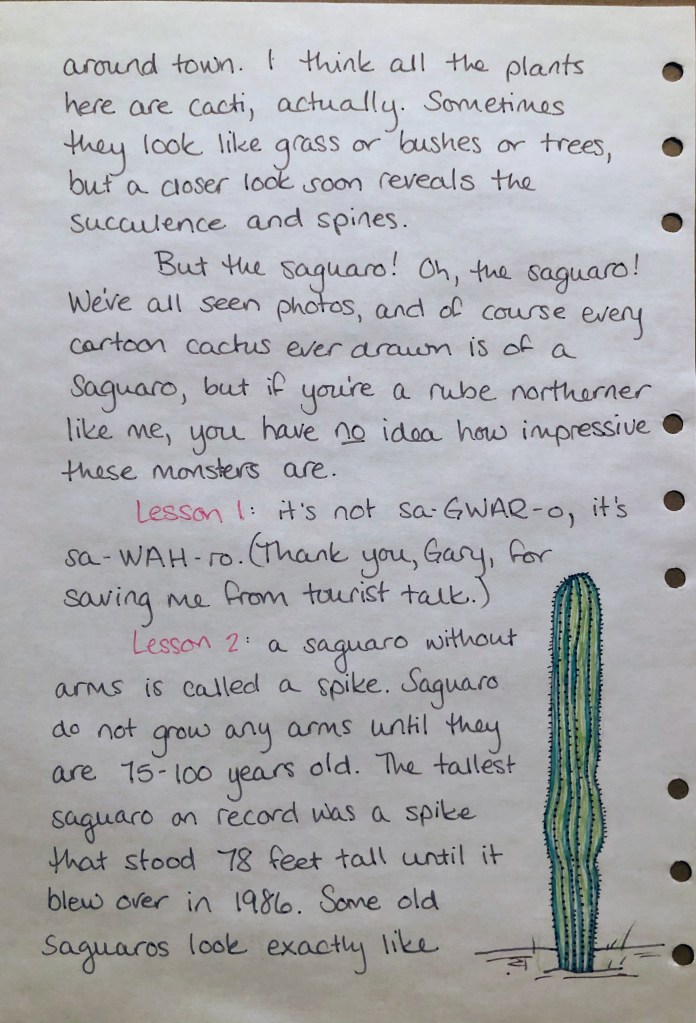 around town. I think all the plants
here are cacti, actually. Sometimes
they look like grass or bushes or trees,
but a closer look soon reveals the
succulence and spines.
But the saguaro! Oh, the saguaro!
We've all seen photos, and of course every
cartoon cactus ever drawn is of a
Saguaro, but if you're a rube northerner
like me, you have no idea how impressive
these monsters are.
Lesson 1: it's not sa-GWAR-o, it's
sa-WAH-ro. (Thank you, Gary, for
saving me from tourist talk.)
Lesson 2: a saguaro without
arms is called a spike. Saguaro
do not grow any arms until they
are 75-100 years old. The tallest
saguaro on record was a spike
that stood 78 feet tall until it
blew over in 1986. Some old
Saguaros look exactly like